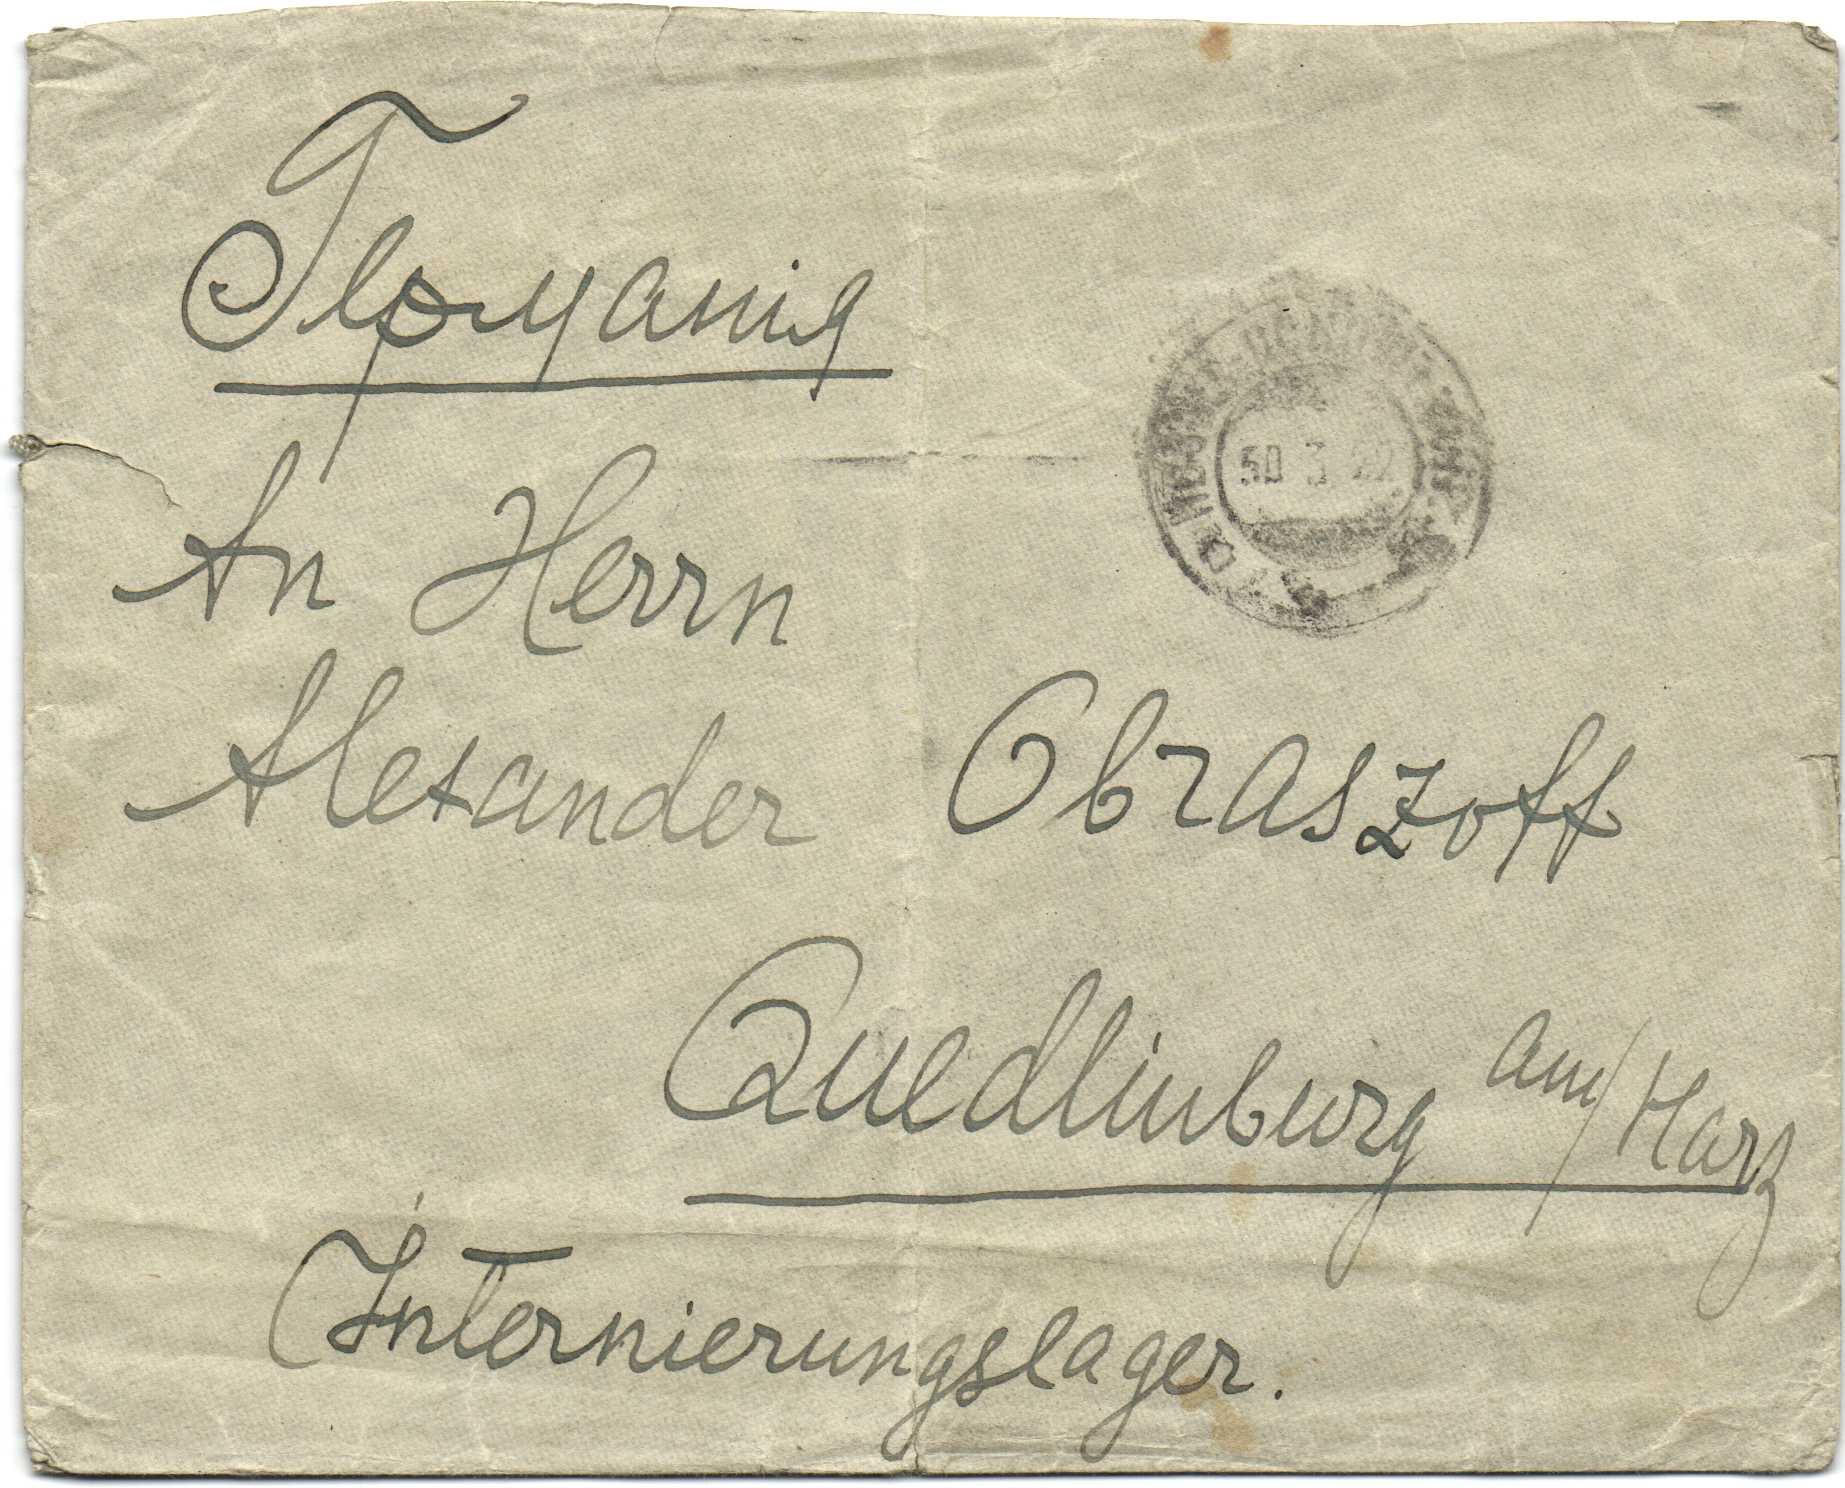 Германія
30 3 22
An Herrn
Alexander Obraszoff
Quedlinburg am/Harz
Internierungslager.